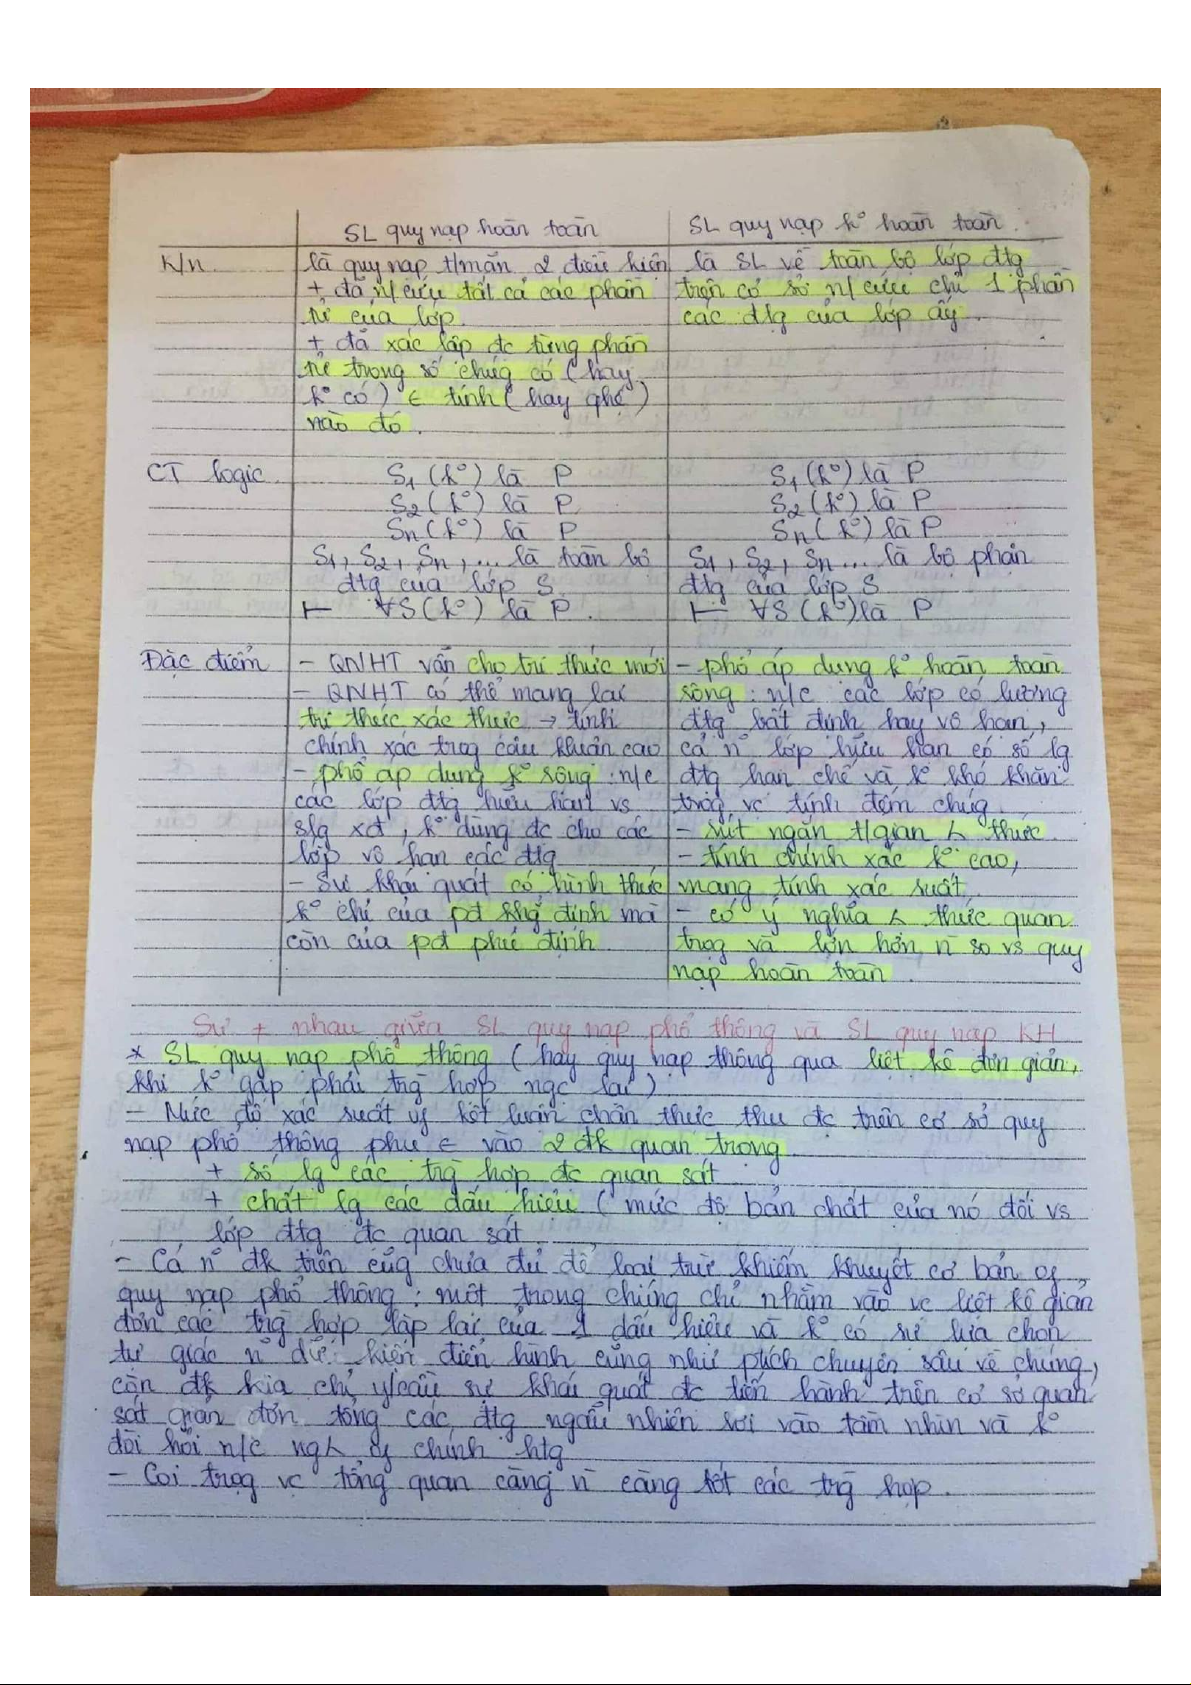 SL quy nạp hoàn toàn
SL quy nạp k° hoàn toàn.
K/n
là quy nạp t/mãn 2 điều kiện
+ đã n/cứu tất cả các phần
tử của lớp.
+ đã xác lập đc từng phần
tử trong số chúg có (hay
k° có) ∈ tính (hay qhệ)
nào đó.
là SL về toàn bộ lớp đtg
trên cơ sở n/cứu chỉ 1 phần
các đtg của lớp ấy.
CT logic
S1 (k°) là P
S2 (k°) là P
Sn (k°) là P
S1, S2, Sn, ... là toàn bộ
đtg của lớp S.
⊢ ∀S (k°) là P.
S1 (k°) là P
S2 (k°) là P
Sn (k°) là P
S1, S2, Sn ... là bộ phận
đtg của lớp S
⊢ ∀S (k°) là P
Đặc điểm
- QNHT vẫn cho tri thức mới
- QNHT có thể mang lại
tri thức xác thực → tính
chính xác trog câu khuân cao
- phổ áp dụng k° rộng: n/c
các lớp đtg hữu hạn vs
slg xđ, k° dùng đc cho các
lớp vô hạn các đtg
- Sự khái quát có hình thức
k° chỉ của pđ khg định mà
còn của pđ phủ định
- phổ áp dụng k° hoàn toàn
rộng: n/c các lớp có lượng
đtg bất định hay vô hạn,
cả n~ lớp hữu hạn có số lg
đtg hạn chế và k° khó khăn
trog vc tính đếm chúg
- rút ngắn t/gian & thức
- tính chính xác k° cao,
mang tính xác suất
- có ý nghĩa & thức quan
trọg và lớn hơn n~ so vs quy
nạp hoàn toàn.
Sự + nhau giữa SL quy nạp phổ thông và SL quy nạp KH
* SL quy nạp phổ thông (hay quy nạp thông qua liệt kê đơn giản,
khi k° gặp phải trg hợp ngc lại)
- Mức độ xác suất of kết luận chân thực thu đc trên cơ sở quy
nạp phổ thông phụ ∈ vào 2 đk quan trọng
+ số lg các trg hợp đc quan sát
+ chất lg các dấu hiệu (mức độ bản chất của nó đối vs
lớp đtg đc quan sát
- Cả n~ đk trên cũg chưa đủ để loại trừ khiếm khuyết cơ bản of
quy nạp phổ thông: một trong chúng chỉ nhằm vào vc liệt kê giản
đơn các trg hợp lặp lại của 1 dấu hiệu và k° có sự lựa chọn
tự giác n~ dữ kiện điển hình cũng như ptích chuyên sâu về chúng,
còn đk kia chỉ y/cầu sự khái quát đc tiến hành trên cơ sở quan
sát giản đơn tổng các đtg ngẫu nhiên rơi vào tầm nhìn và k°
đòi hỏi n/c ng& of chính htg
- Coi trọg vc tổng quan càng n~ càng tốt các trg hợp.